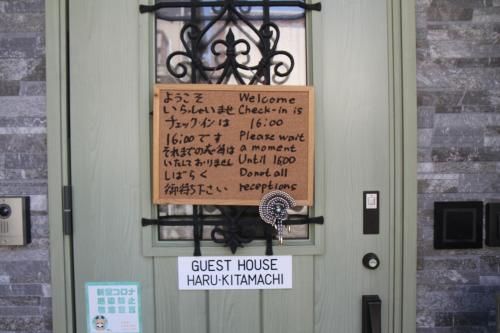 ようこそ
いらっしゃいませ
チェックインは
16:00です
それまでの
いたしておりません
しばらく
御待ち下さい
Welcome
Check-in is
16:00
Please wait
a moment
Until 1600
Donot all
receptions
GUEST HOUSE
HARU·KITAMACHI
新型コロナ
感染防止